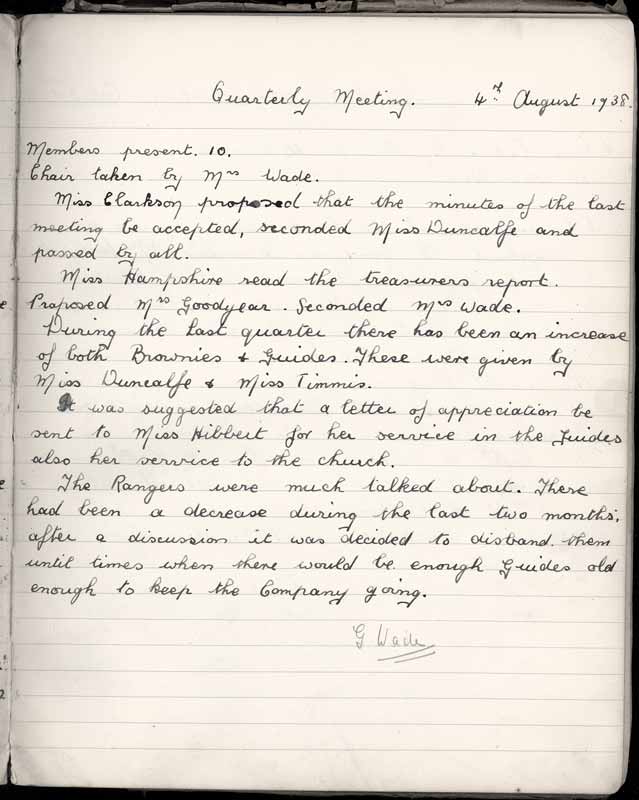 Quarterly Meeting. 4th August 1938.
Members present. 10.
Chair taken by Mrs Wade.
Miss Clarkson proposed that the minutes of the last
meeting be accepted, seconded Miss Duncalfe and
passed by all.
Miss Hampshire read the treasurers report.
Proposed Mrs Goodyear. Seconded Mrs Wade.
During the last quarter there has been an increase
of both Brownies & Guides. These were given by
Miss Duncalfe & Miss Timmis.
It was suggested that a letter of appreciation be
sent to Miss Hibbert for her service in the Guides
also her service to the church.
The Rangers were much talked about. There
had been a decrease during the last two months,
after a discussion it was decided to disband them
until times when there would be enough Guides old
enough to keep the Company going.
G Wade